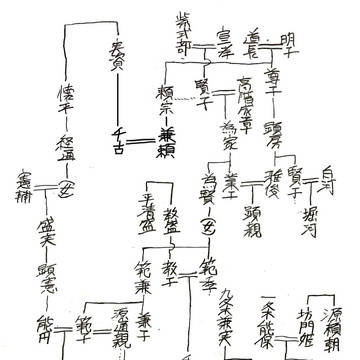 紫式部
宣孝
道長
明子
実資
頼宗
賢子
高階成章
尊子
懐平
為家
顕房
経通
千古
兼頼
憲輔
女
平清盛
教盛
為賢
業子
顕親
雅俊
賢子
白河
堀河
盛実
女
顕憲
範兼
教子
範季
能円
範子
源通親
兼子
九条兼実
一条能保
坊門姫
源頼朝